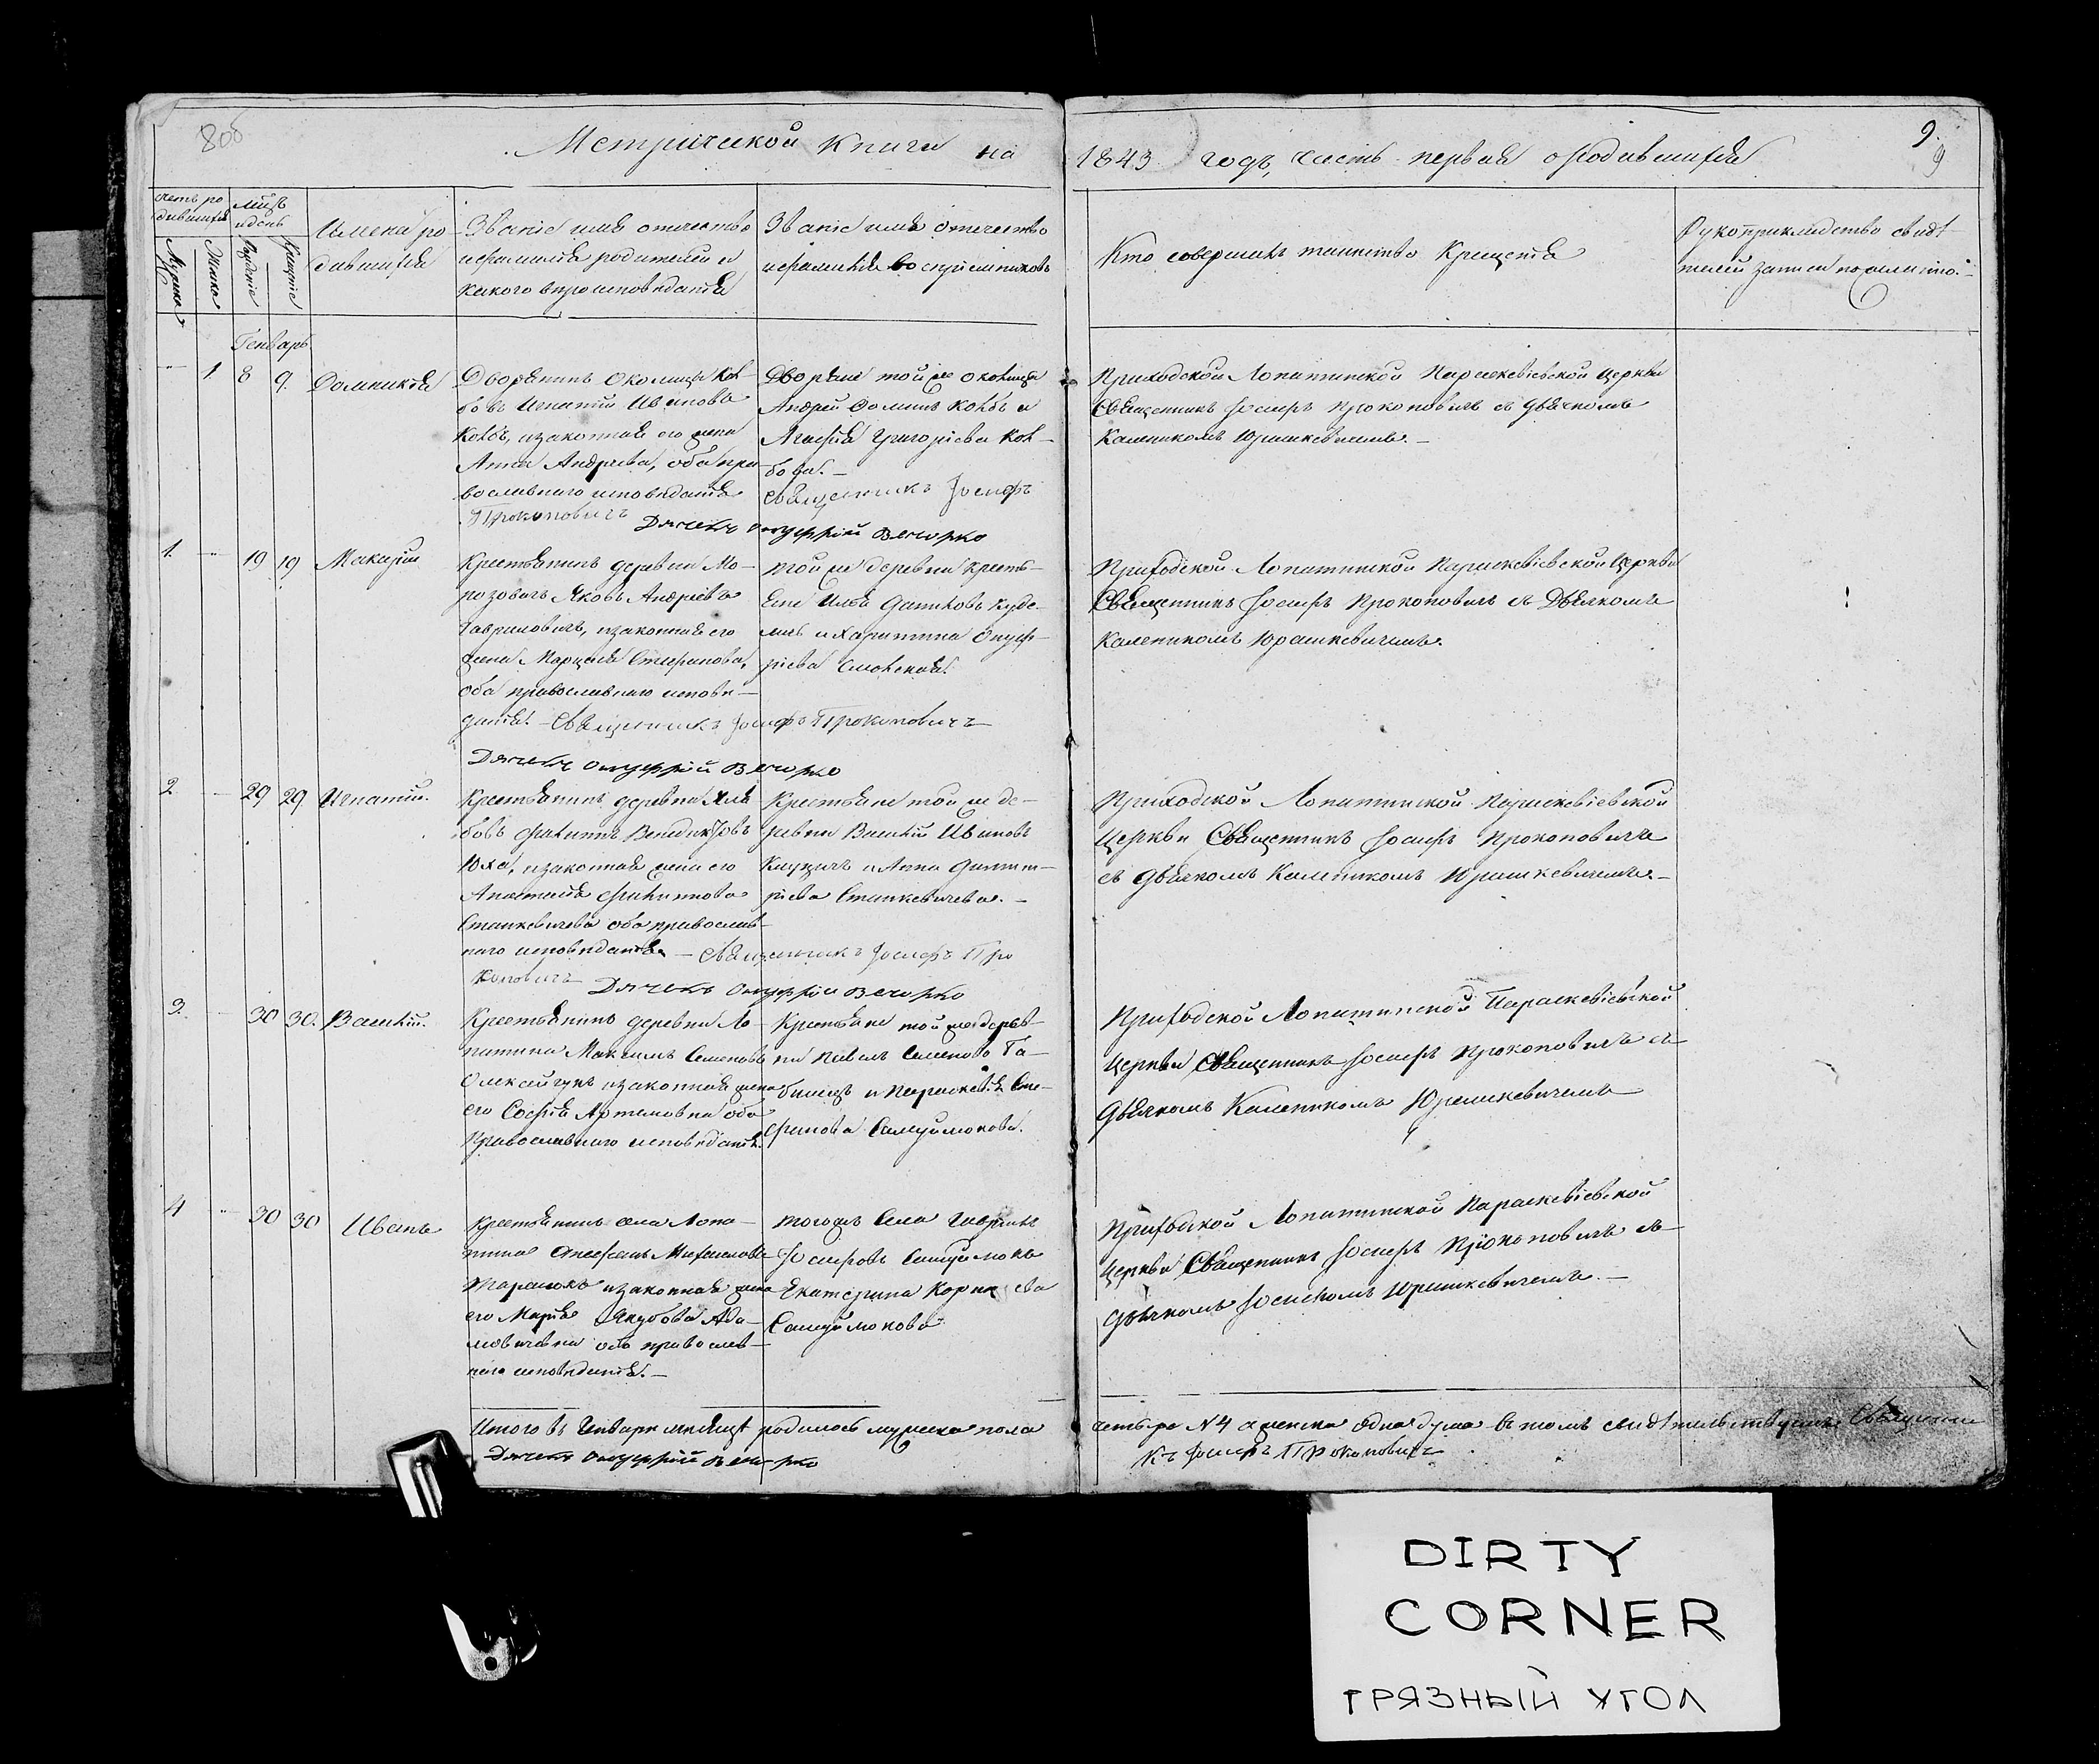 8об
Метрической Книги на
1843 годъ, часть первая о родившихся
9.
9
Счетъ ро
дившихся
Мужска
Женска
мцъ
и день
Рожденіе
Крещеніе
Имена ро
дившихся
Званіе имя отечество
и фамилія родителей и
какого вѣроисповѣданія
Званіе имя отечество
и фамилія воспріемниковъ
Кто совершилъ таинство Крещенія
Рукоприкладство свидѣ
телей записи по желанію.
Генварь
1 8 9. Домникія
Дворянинъ Околицы Кол
бовъ Игнатій Иванова
Колбъ, и законная его жена
Анна Андреева, оба пра
вославнаго исповѣданія
Дворяне той же околицы
Андрей Фоминъ Колбъ и
Агафія Григоріева Кол
бова.
Священникъ Іосифъ
Прокоповичъ
Дячекъ Онуфрій Вечорко
Приходской Лопатинской Параскевіевской церкви
Священникъ Іосифъ Прокоповичъ съ дьячкомъ
Каленикомъ Юрашкевичемъ.
1. 19 19 Макарій
Крестьянинъ деревни Мо-
розовичъ Яковъ Андреевъ
Гавриловичъ, и законная его
жена Марцеля Стефанова,
оба православнаго исповѣ-
данія. - Священникъ Іосифъ Прокоповичъ
Дячекъ Онуфрій Вечорко
той же деревни кресть-
яне Илья Даниловъ Куде-
личъ и Харитина Онуф-
ріева Смольская.
Приходской Лопатинской Параскевіевской Церкви
Священникъ Іосифъ Прокоповичъ съ Дьячкомъ
Каленикомъ Юрашкевичемъ.
2. 29 29 Игнатій.
Крестьянинъ деревни Хля
бовъ Филиппъ Венедиктовъ
Юха, и законная жена его
Анастасія Филиппова
Станкевичева оба православ-
наго исповѣданія. - Священникъ Іосифъ Про
коповичъ Дячекъ Онуфрій Вечорко
Крестьяне той же де-
ревни Василій Ивановъ
и Анна Димит-
ріева Станкевичева. -
Приходской Лопатинской Параскевіевской
Церкви Священникъ Іосифъ Прокоповичъ
съ дьячкомъ Каленикомъ Юрашкевичемъ. -
3. 30 30. Василій.
Крестьянинъ деревни Ло-
патина Максимъ Семеновъ
Олексіюкъ и законная жена
его Софія Артемовна оба
Православнаго исповѣданія.
Крестьяне той же дерев-
ни Павелъ Семеновъ
и Параскевія Сте-
фанова Самуйлюкова.
Приходской Лопатинской Параскевіевской
Церкви Священникъ Іосифъ Прокоповичъ съ
Дьячкомъ Каленикомъ Юрашкевичемъ
4 30 30 Иванъ
Крестьянинъ села Лопа-
тина Стефанъ Михаиловъ
Тарасюкъ и законная жена
его Марія Якубова Ада-
мовичевна оба православ-
наго исповѣданія. -
тогожъ Села Гаврилъ
Іосифовъ Самуйлюкъ
Екатерина Корнеева
Самуйлюкова
Приходской Лопатинской Параскевіевской
Церкви Священникъ Іосифъ Прокоповичъ съ
Дьячкомъ Юрашкевичемъ. -
Итого въ Генварѣ месяцѣ родилось мужеска пола
четыре №4 а женска одна душа въ томъ свидѣтельствуемъ Священни
Дячекъ Онуфрій Вечорко
къ Іосифъ Прокоповичъ
DIRTY
CORNER
ГРЯЗНЫЙ УГОЛ